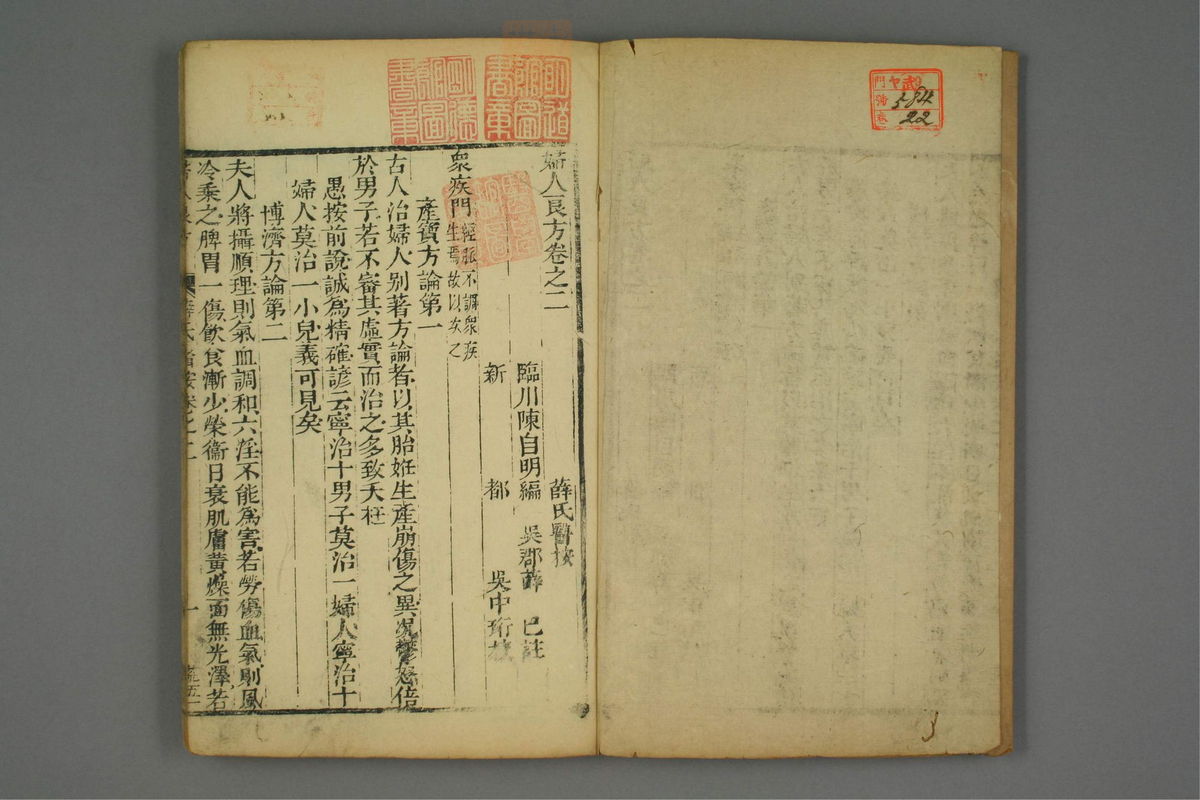 婦人良方卷之二
薛氏醫按
臨川陳自明編 吳郡薛 已註
新 都 吳中珩校
衆疾門 經脈不調衆疾
生焉故以次之
產寶方論第一
古人治婦人別著方論者以其胎姙生產崩傷之異況鬱怒倍
於男子若不審其虛實而治之多致夭枉
愚按前說誠爲精確諺云寧治十男子莫治一婦人寧治十
婦人莫治一小兒義可見矣
博濟方論第二
夫人將攝順理則氣血調和六淫不能爲害若勞傷血氣則風
冷乘之脾胃一傷飲食漸少榮衞日衰肌膚黃燥面無光澤若
卷之二
一
明德館圖書章
584
22
3